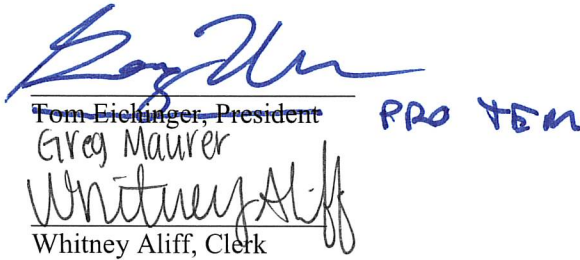 Greg Maurer
Tom Eichinger, President PRO TEM
Greg Maurer
Whitney Aliff
Whitney Aliff, Clerk